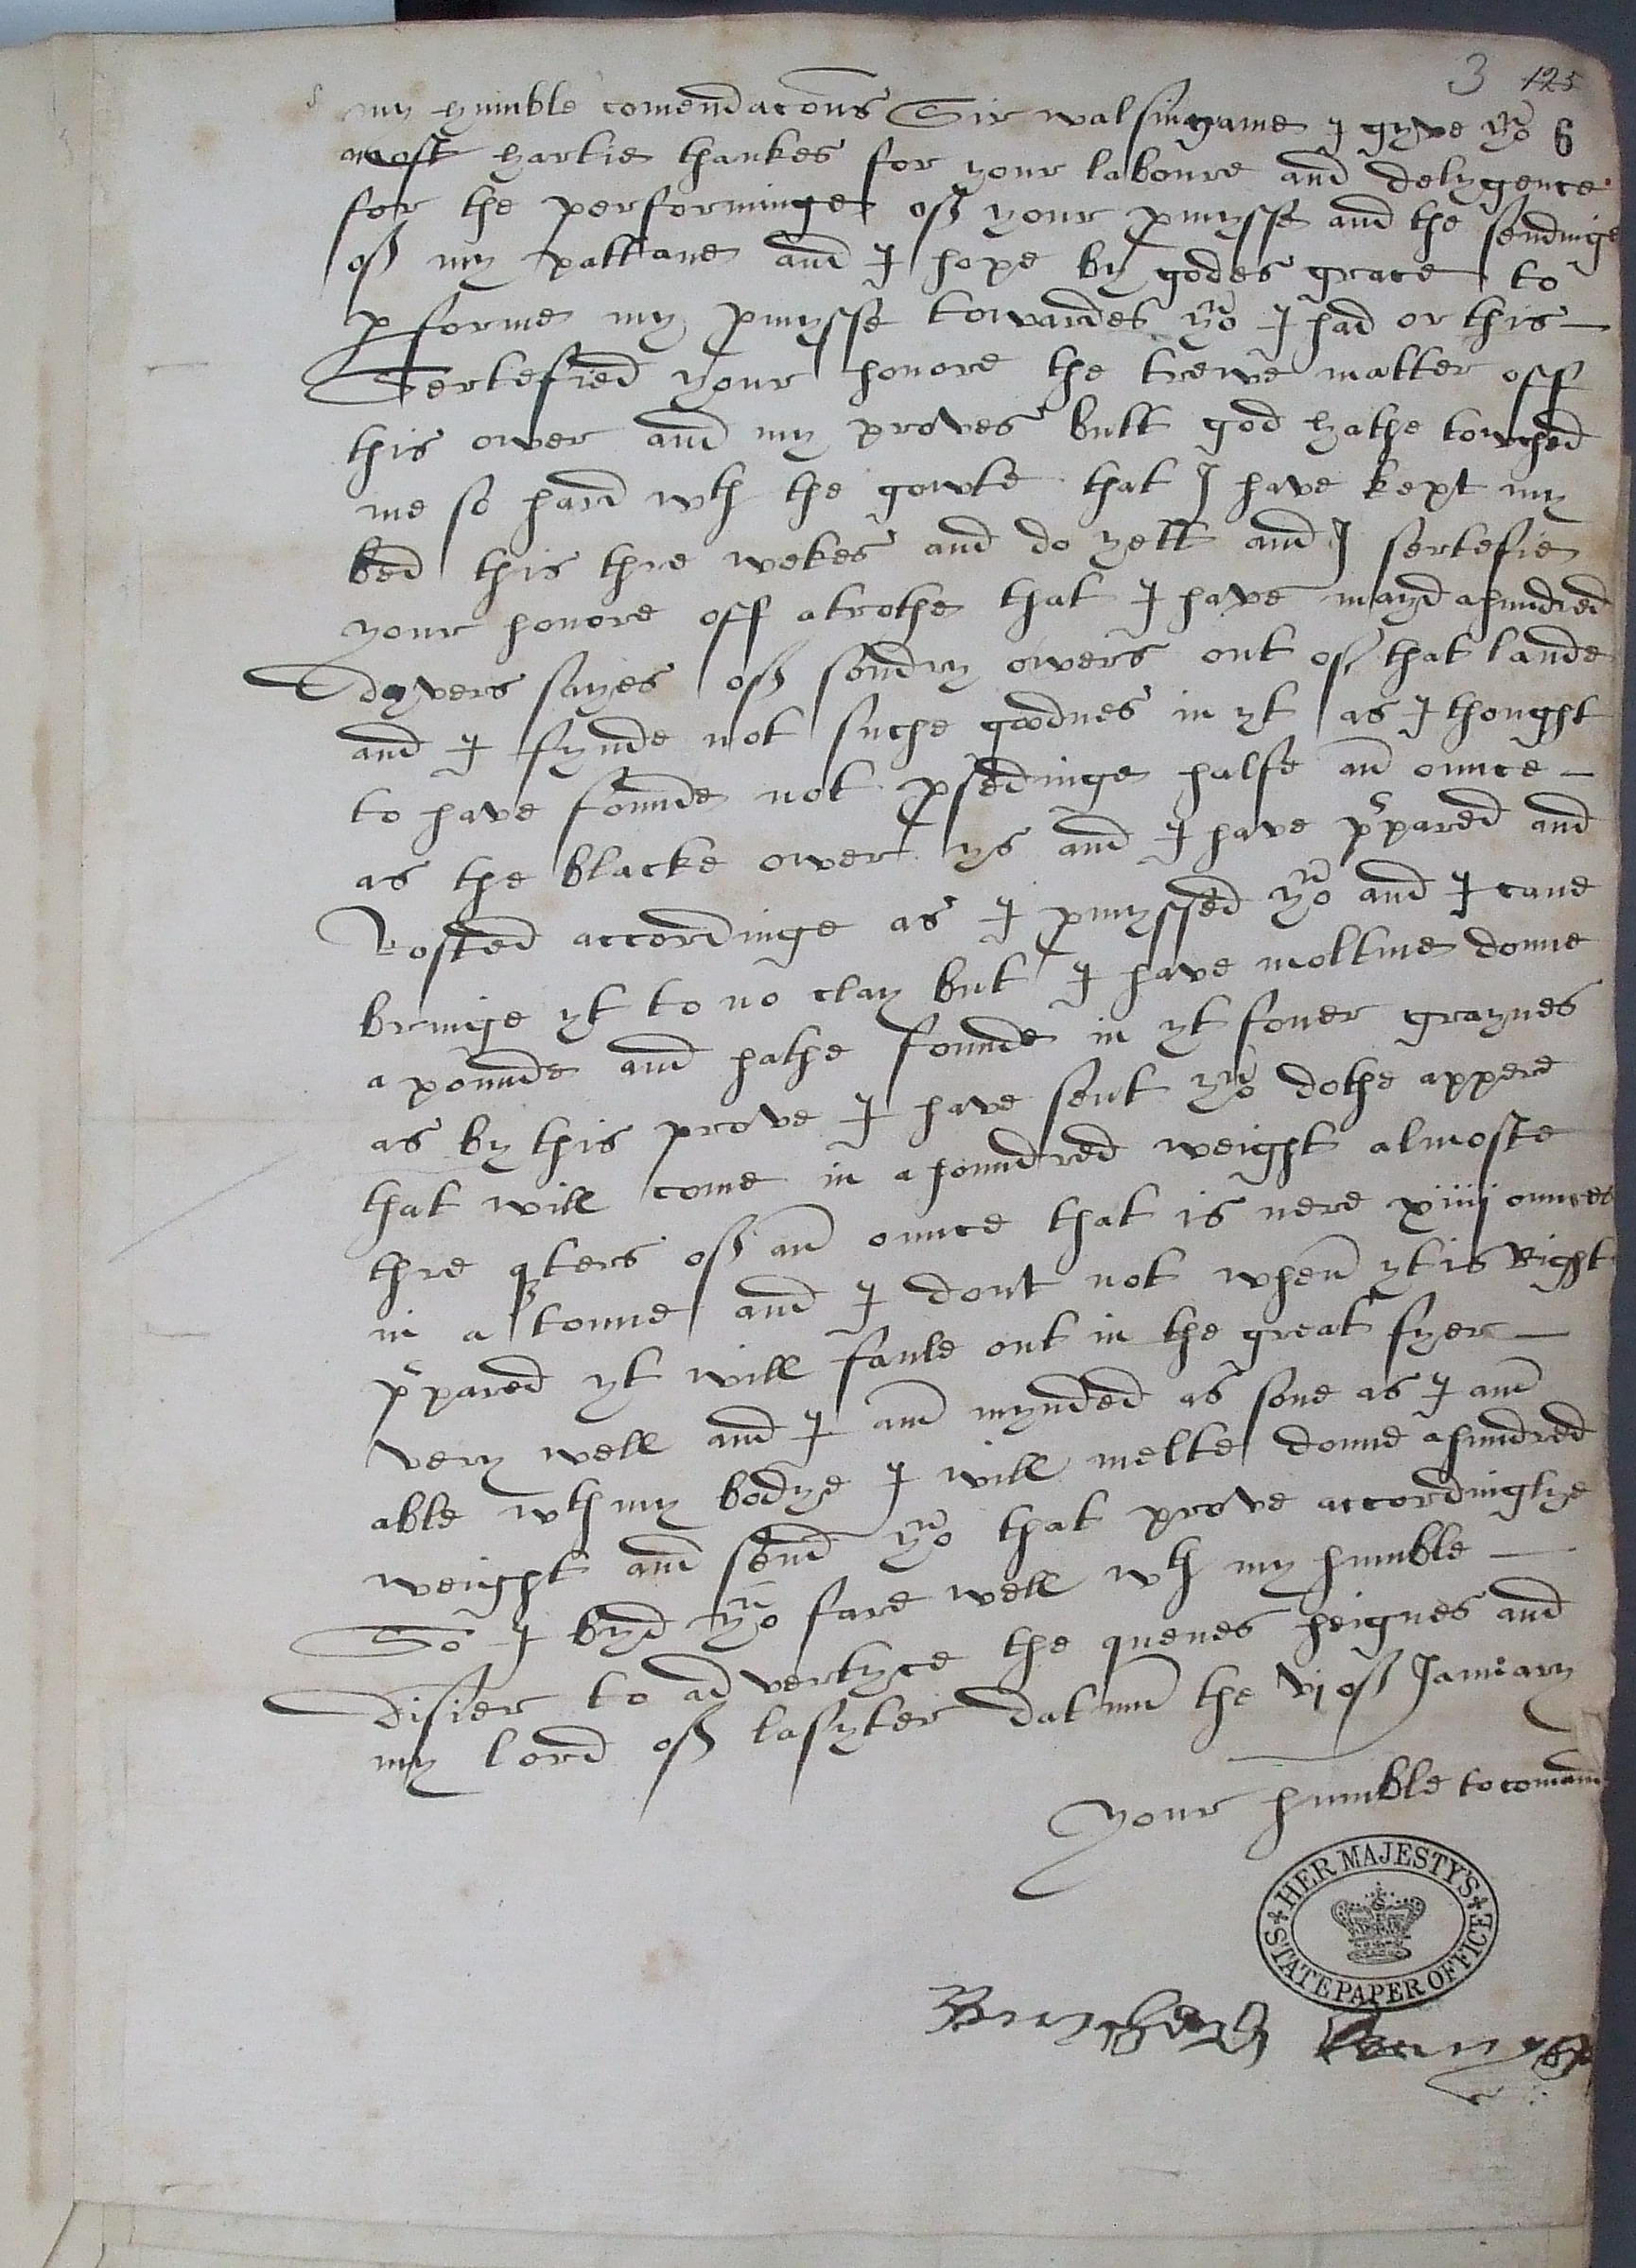 3 125
my humble comendacons Sir walsingame I gyve yo 6
most hartie thankes for your laboure and delygence
for the performinge off your pmysse and the sendinge
off my pattane and I hope by godes grace to
pforme my pmysse towardes yo I had or this
Sertefied your honore the trewe matter off
this ower and my proves butt god hathe towched
me so hard wth the gowte that I have kept my
bed this thre wekes and do yett and I sertefie
your honore off atrothe that I have mayd ahundred
dyvers sayes off sondry owers out off that lande
and I fynde not suche goodnes in yt as I thought
to have founde not psedinge halfe an ounce
as the blacke ower ys and I have ppared and
Rosted accordinge as I pmyssed yo and I cane
bringe yt to no clay but I have moltine downe
a pounde and hathe founde in yt fower graynes
as by this prove I have sent yo dothe appere
that will come in a houndred weight almoste
thre qters off an ounce that is nere xiiij ounces
in a tonne and I dout not when yt is Right
ppared yt will faule out in the great fyer
very well and I am mynded as sone as I am
able wth my bodye I will melte downe ahundred
weight and send yo that prove accordinglye
So I byd yo fare well wth my humble
disier to advertyce the quenes heignes and
my lord off lasyter datum the vj off January
your humble to comand
HER MAJESTY'S STATE PAPER OFFICE